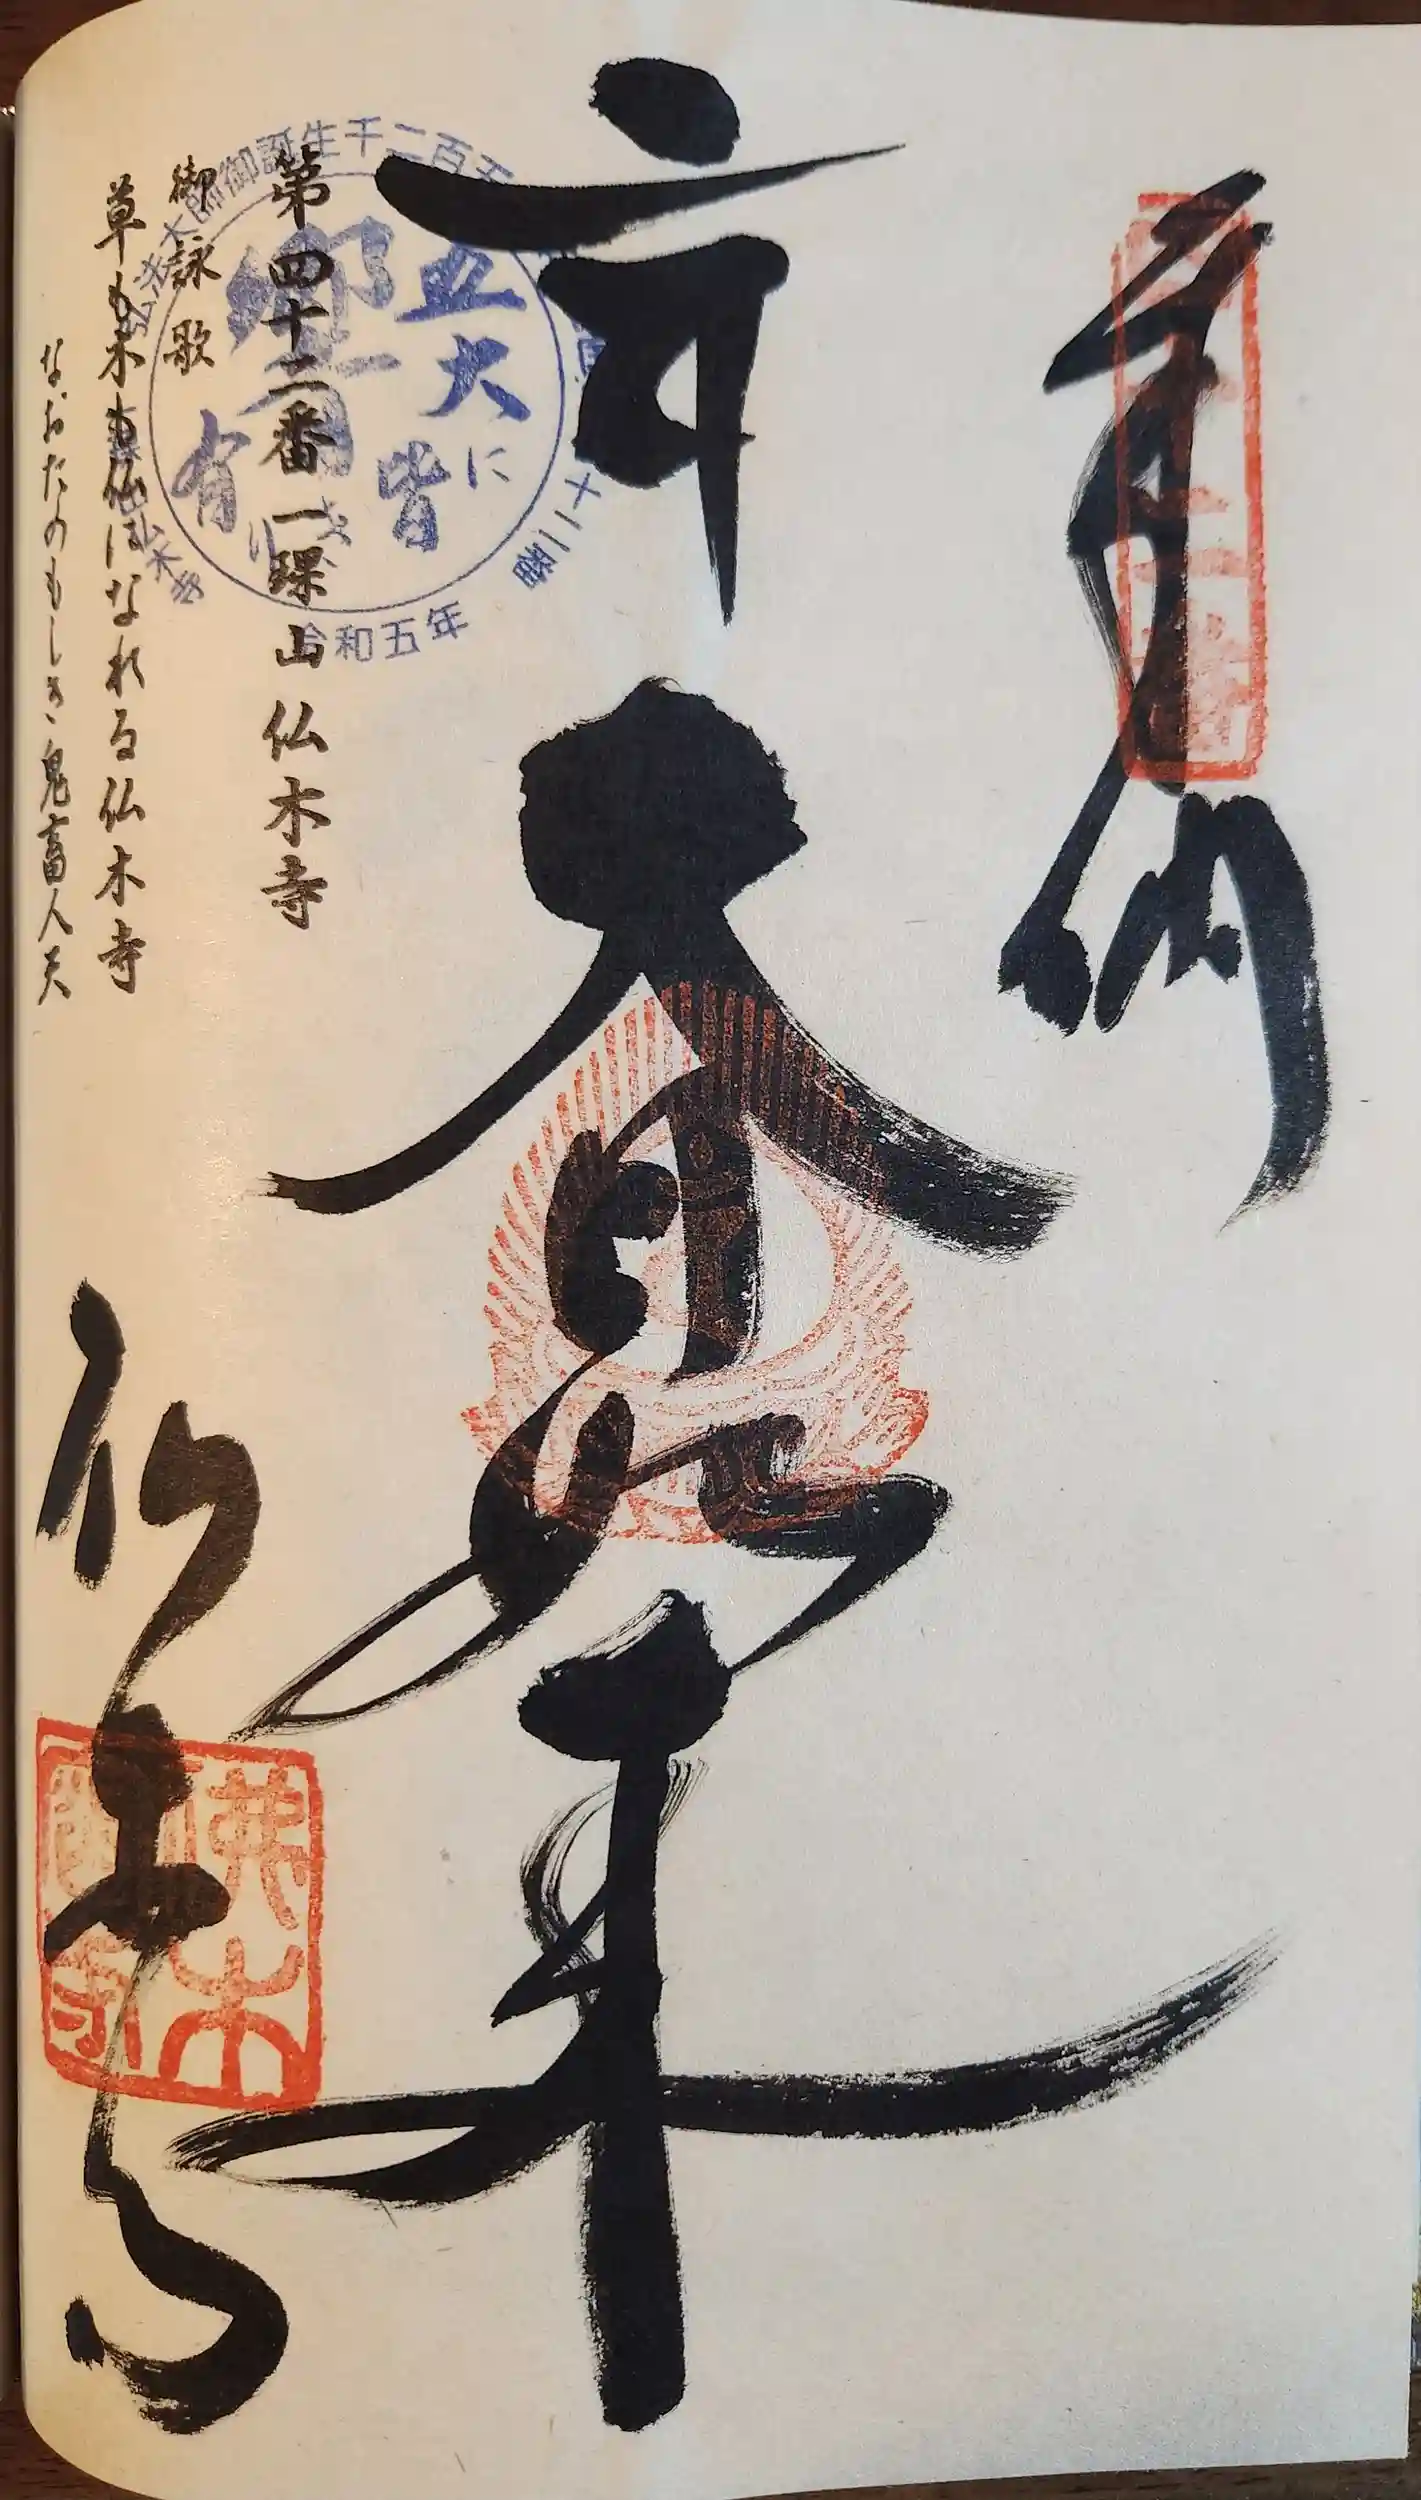 奉納
大日如来
仏木寺
第四十二番一𤩍山仏木寺
御詠歌
草も木も仏になれる仏木寺
なおたのもしき鬼畜人天
弘法大師御誕生千二百五十
四十二番
仏木寺
令和五年
五大に
皆
響
有
佛木寺